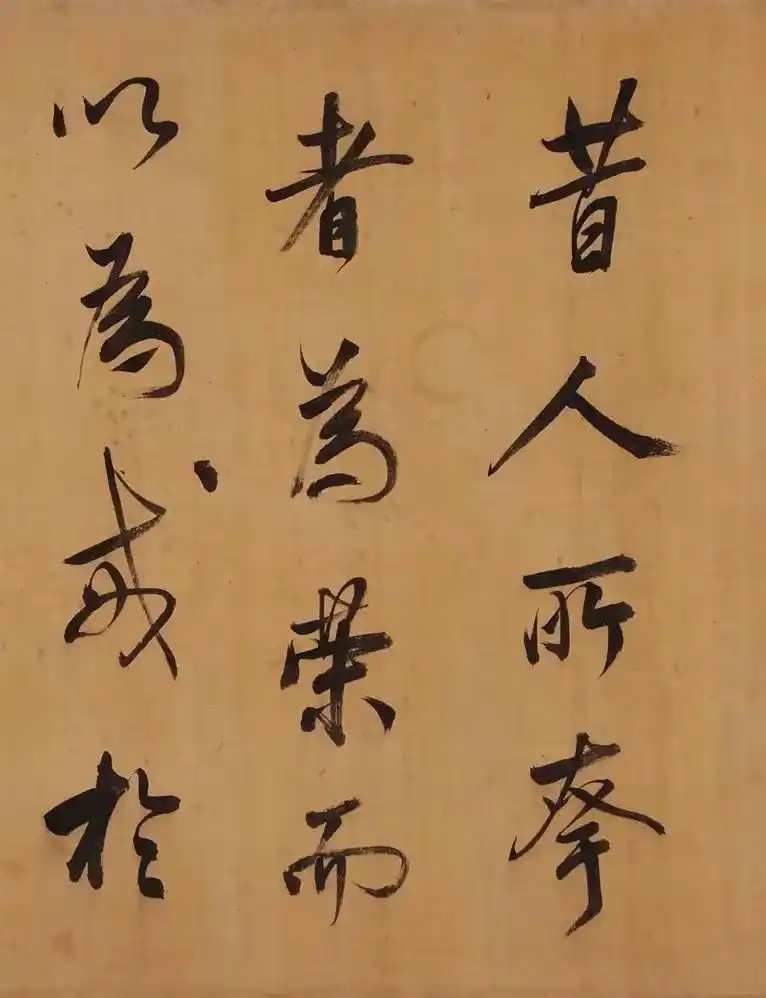 昔人所夸
者為榮而
以為戒於